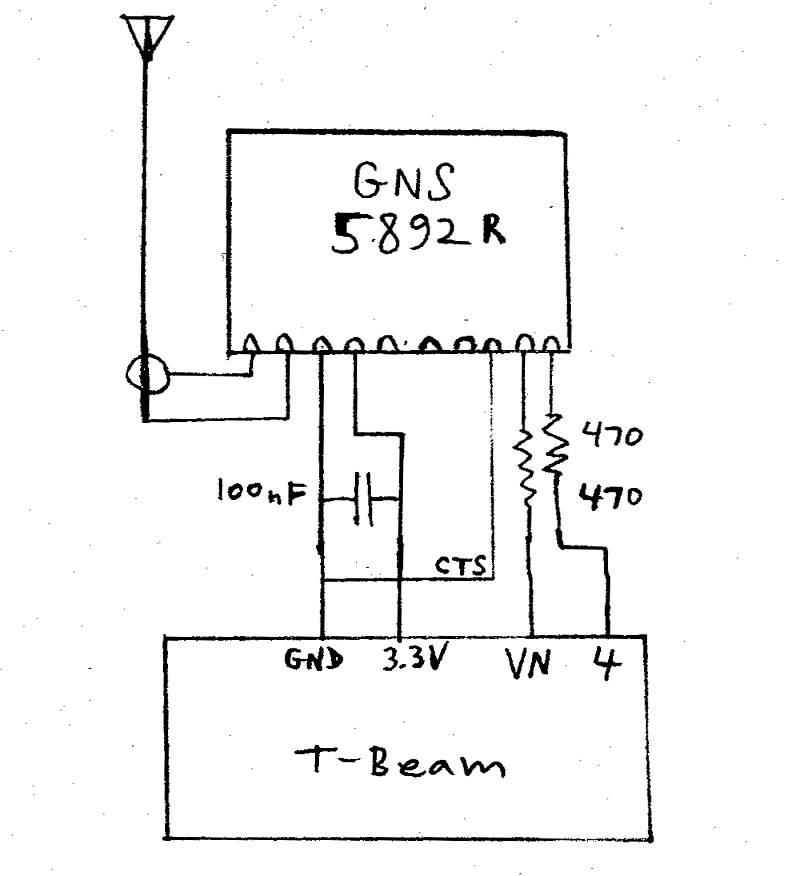 GNS
5892R
470
100nF
470
CTS
GND 3.3V VN 4
T-Beam